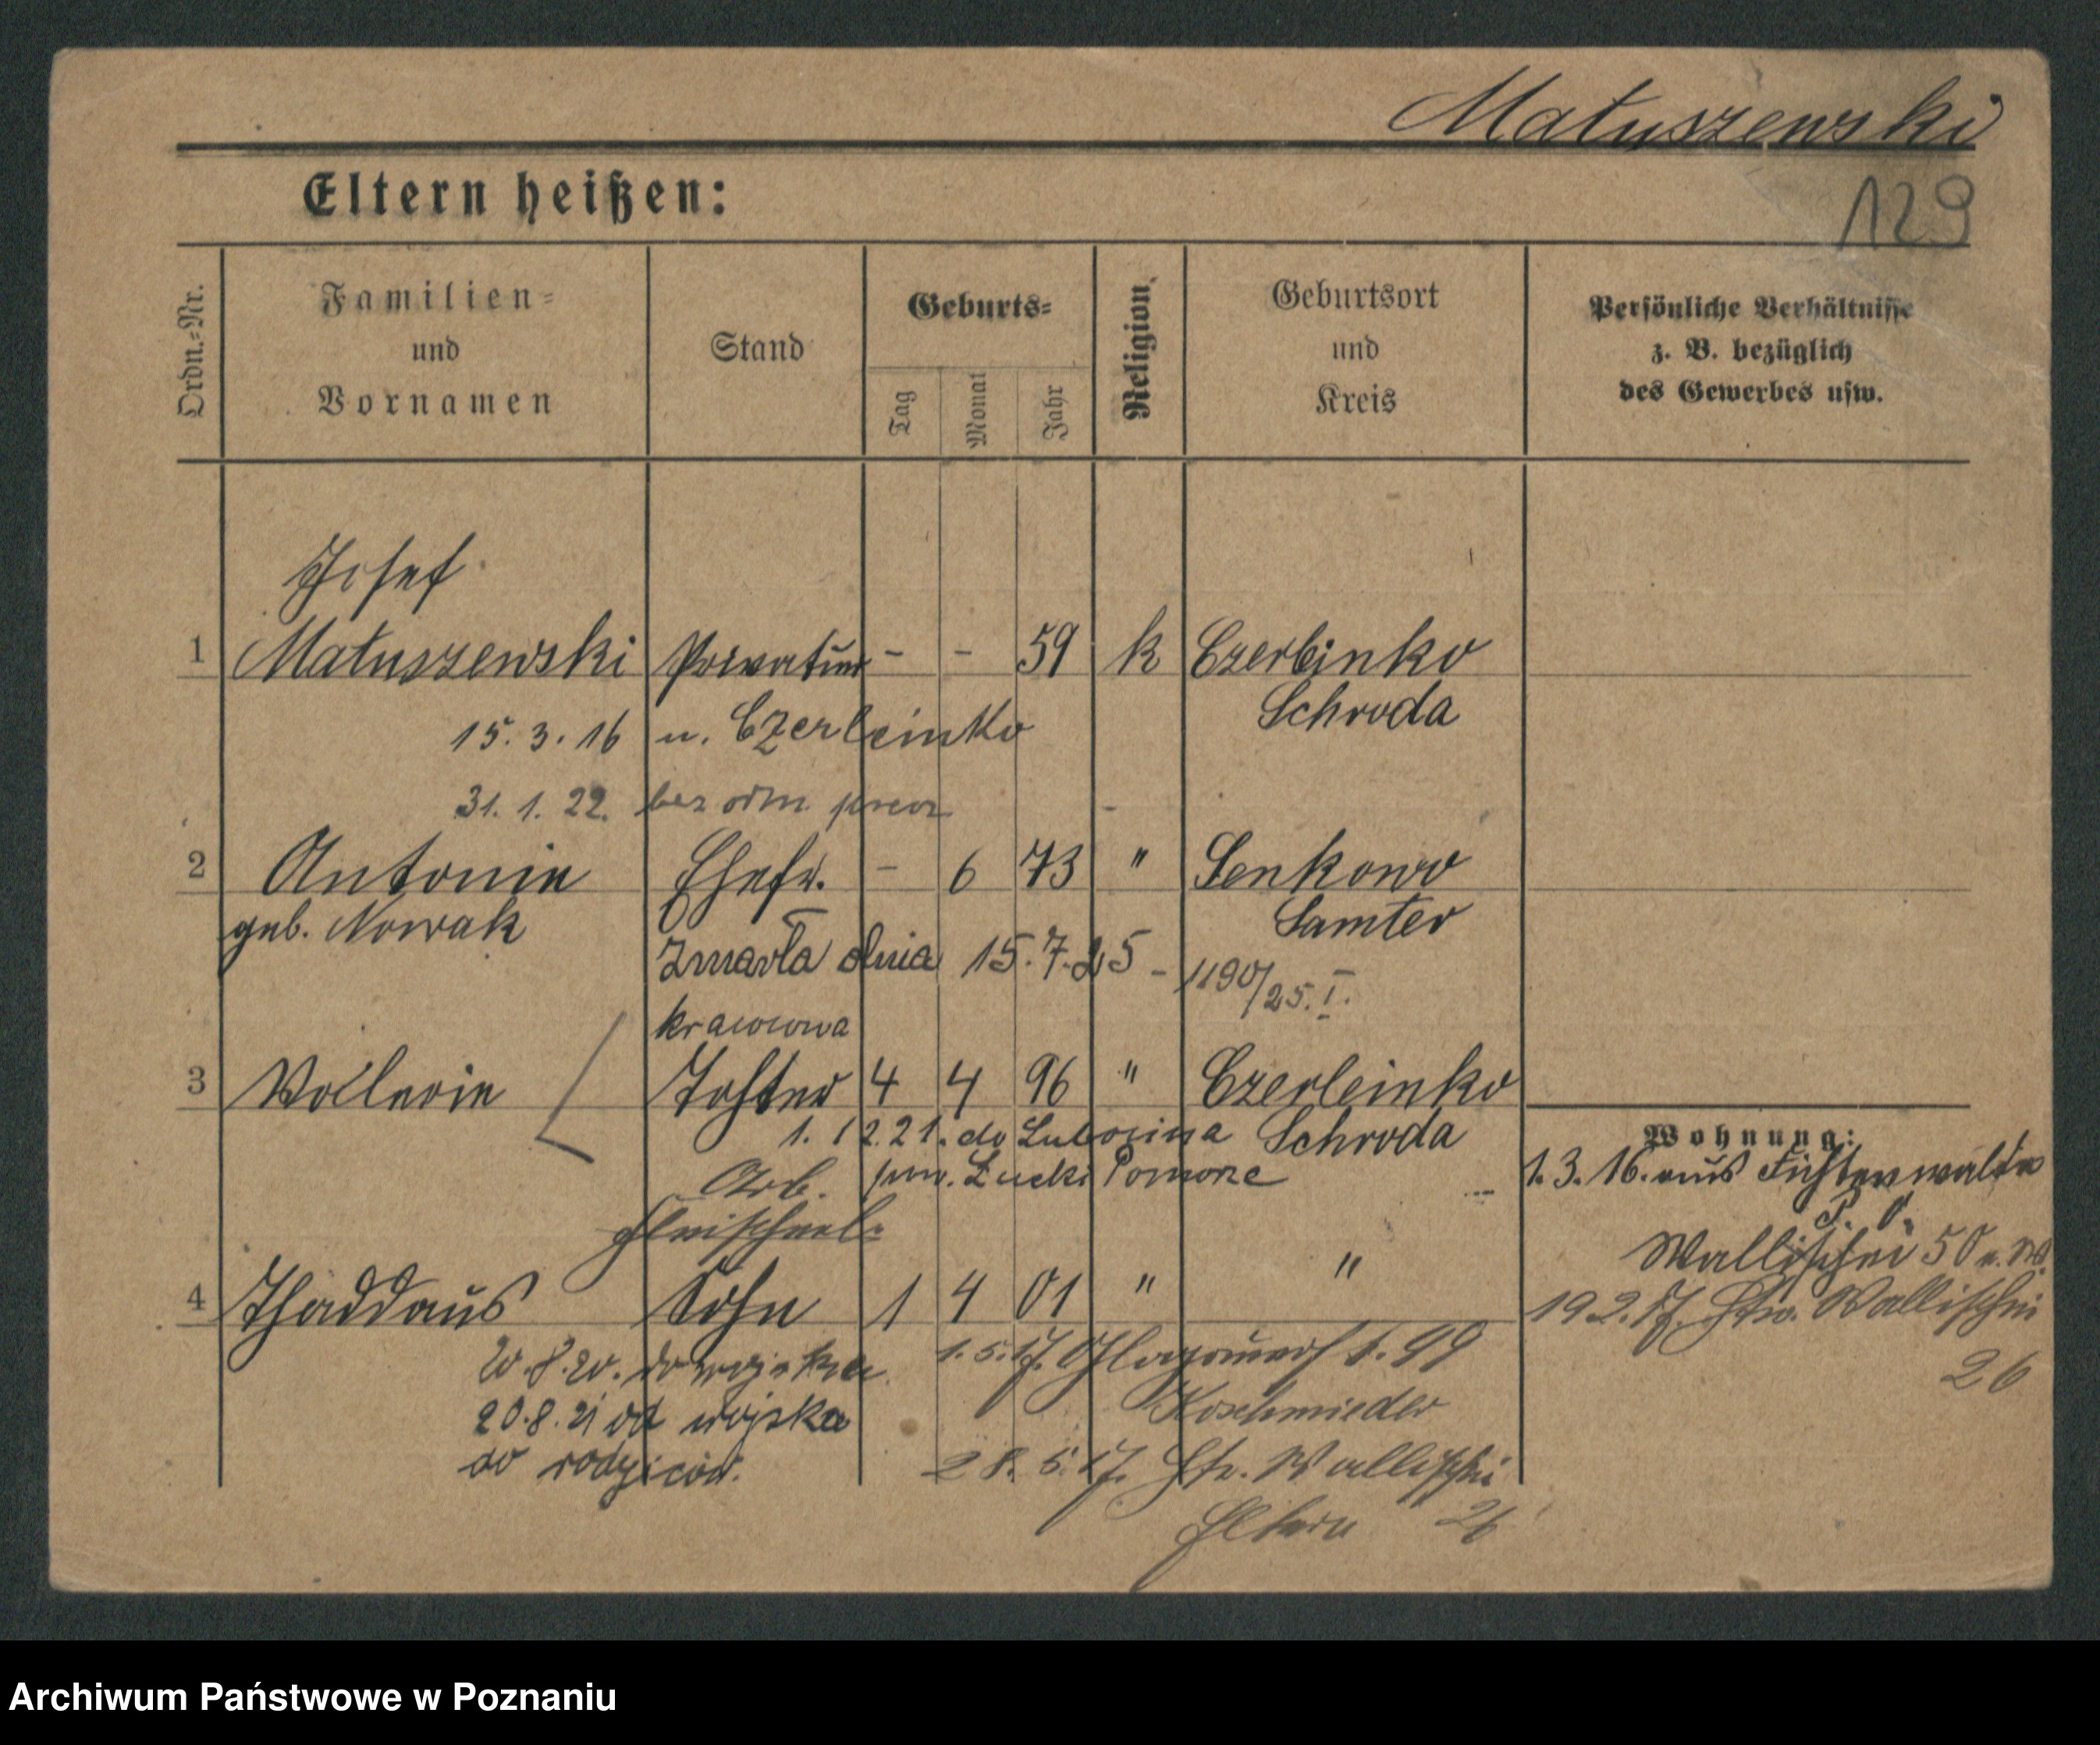 Matuszewski
129
Eltern heißen:
Ordn.=Nr.
Familien=
und
Vornamen
Stand
Geburts=
Tag
Monat
Jahr
Religion.
Geburtsort
und
Kreis
Persönliche Verhältnisse
z. B. bezüglich
des Gewerbes usw.
Josef
1 Matuszewski Privatier - - 59 k Czerleinko
Schroda
15. 3. 16 n. Czerleinko
31. 1. 22. bez odm.
2 Antonie Ehefr. - 6 73 " Senkowo
geb. Nowak Samter
Zmarła dnia 15.7.25 - 1190/25. I.
krawcowa
3 Vallerie Tochter 4 4 96 " Czerleinko
1. 12.21. do Schroda
Arb. pow. Pomorze
Wohnung:
1. 3. 16. aus Fichtenwalde
P. O.
Wallischei 50
Fleischerl.
4 Thaddäus Sohn 1 4 01 " "
19 2. 17. Str. Wallischei
26
20.8.20. do wojska
1. 5. 17. Glogauerstr. 99
20.8.21 od wojska
Koschmieder
do rodziców.
28. 5. 17. Wallischei
Eltern 26
Archiwum Państwowe w Poznaniu